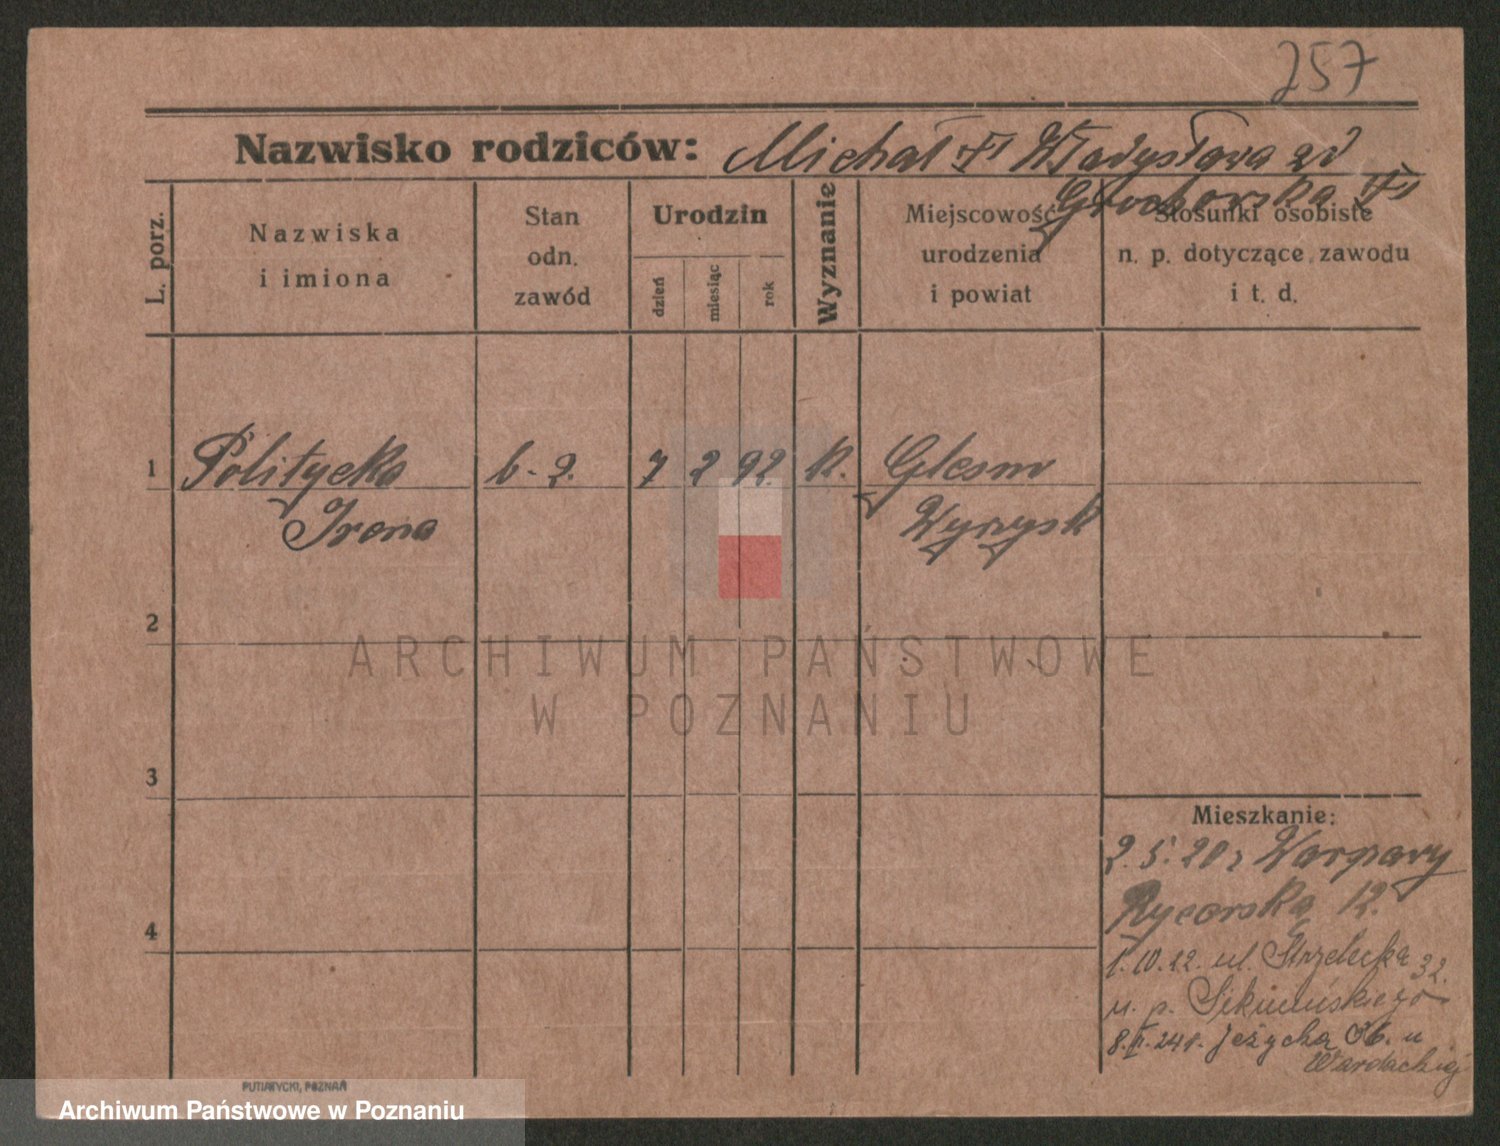 257
Nazwisko rodziców: Michał Władysława
Grochowska
L. porz.
Nazwiska
i imiona
Stan
odn.
zawód
Urodzin
dzień
miesiąc
rok
Wyznanie
Miejscowość
urodzenia
i powiat
Stosunki osobiste
n. p. dotyczące zawodu
i t. d.
1 Politycka b-z. 7 2 92. K. Glesno
Irena Wyrzysk
2
ARCHIWUM PAŃSTWOWE
W POZNANIU
3
Mieszkanie:
2.5.20 z Warszawy
Rycerska 12.
4
1.10.22. ul. Strzelecka 32.
u. p.
8.II.24r. Jeżycka 36. u
PUTIATYCKI, POZNAŃ
Archiwum Państwowe w Poznaniu